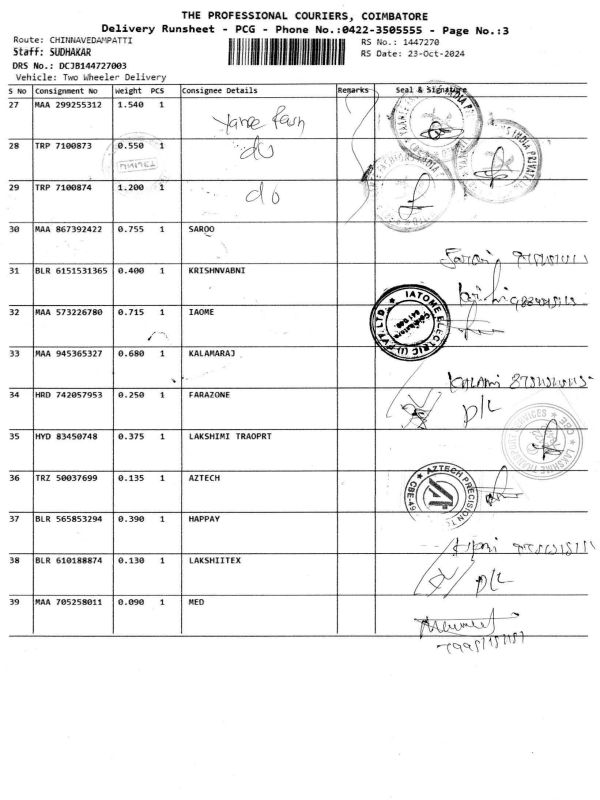 THE PROFESSIONAL COURIERS, COIMBATORE
Delivery Runsheet - PCG - Phone No.:0422-3505555 - Page No.:3
Route: CHINNAVEDAMPATTI RS No.: 1447270
Staff: SUDHAKAR RS Date: 23-Oct-2024
DRS No.: DCJB144727003
Vehicle: Two Wheeler Delivery
S No Consignment No Weight PCS Consignee Details Remarks Seal & Signature
27 MAA 299255312 1.540 1
28 TRP 7100873 0.550 1 do
29 TRP 7100874 1.200 1 do
30 MAA 867392422 0.755 1 SAROO
31 BLR 6151531365 0.400 1 KRISHNVABNI
32 MAA 573226780 0.715 1 IAOME
IATOME ELECTRIC (I) PVT. LTD
33 MAA 945365327 0.680 1 KALAMARAJ
34 HRD 742057953 0.250 1 FARAZONE D/L
35 HYD 83450748 0.375 1 LAKSHIMI TRAOPRT
LAKSHMI TRANSPORT SERVICES CBE
36 TRZ 50037699 0.135 1 AZTECH
AZTECH PRECISION
37 BLR 565853294 0.390 1 HAPPAY
38 BLR 610188874 0.130 1 LAKSHIITEX D/L
39 MAA 705258011 0.090 1 MED